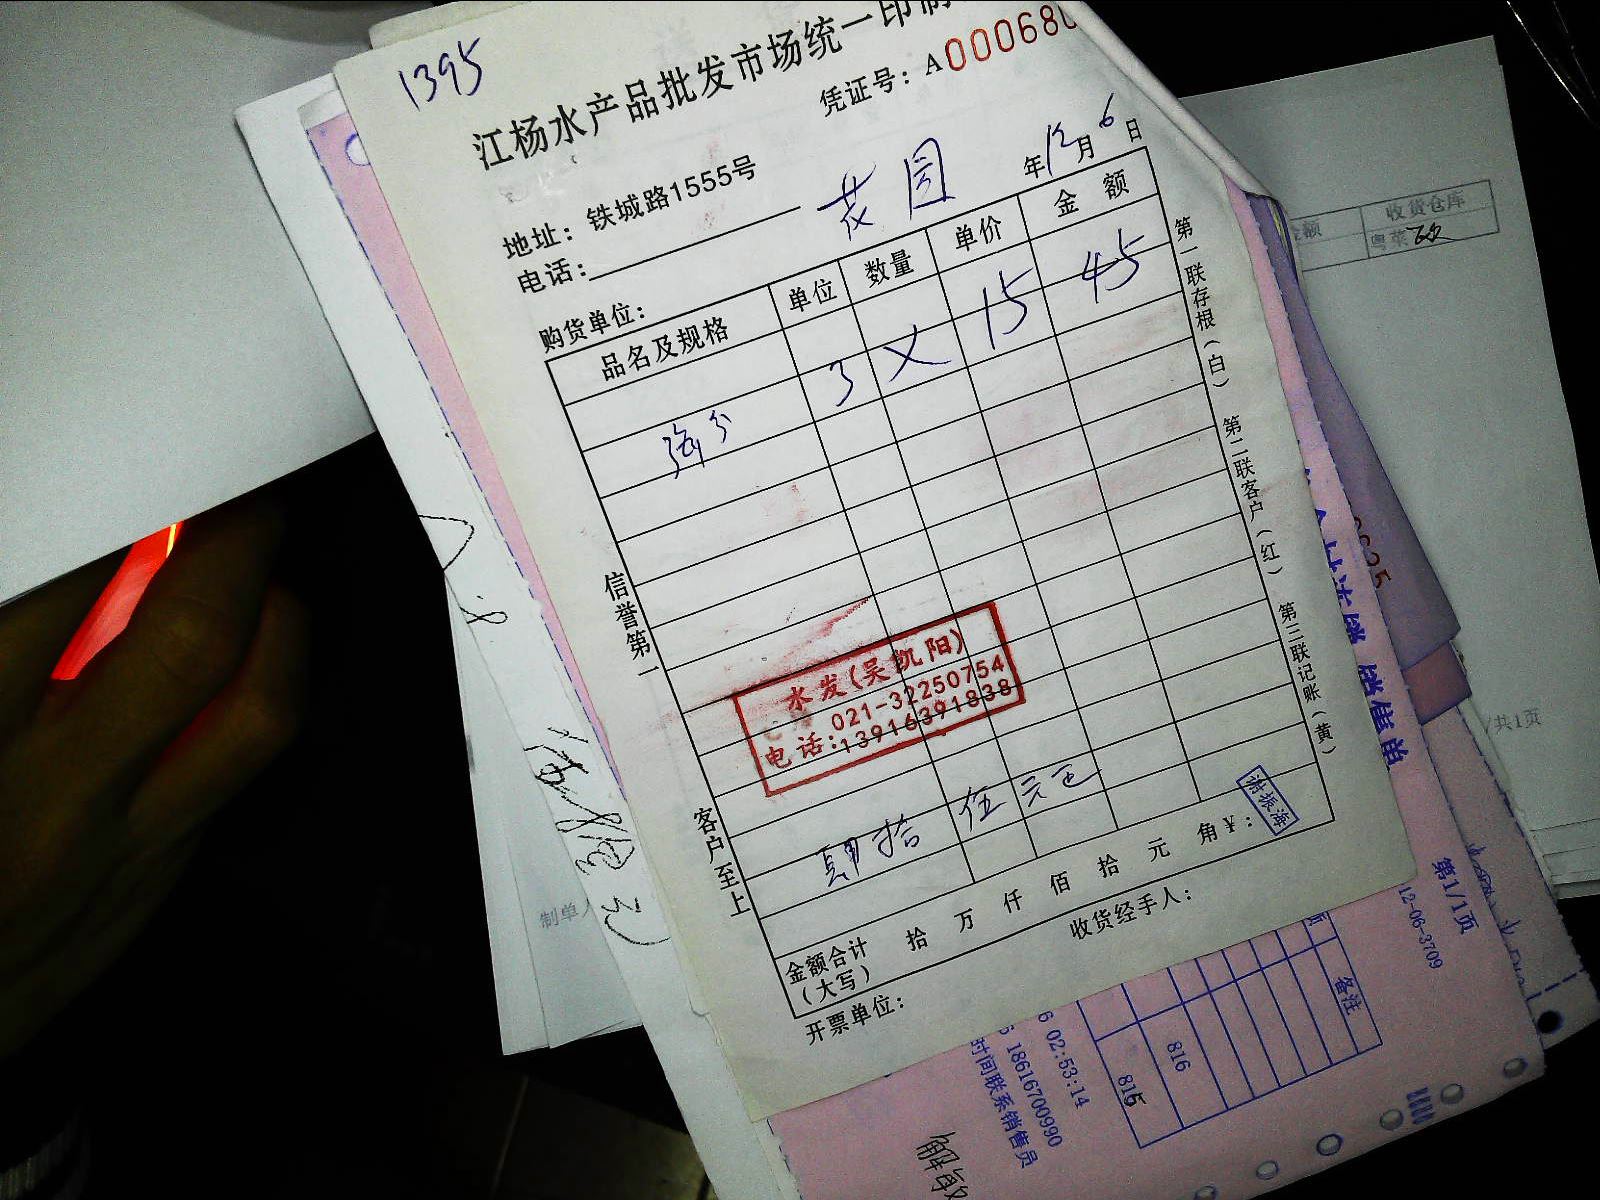 1395
江杨水产品批发市场统一印制
凭证号：A000680
地址：铁城路1555号
电话：
年12月6日
购货单位：
花园
品名及规格 单位 数量 单价 金额
3 X 15 45
肆拾伍元正
信誉第一
客户至上
水发(吴凯阳)
021-32250754
电话:13916391838
金额合计（大写） 拾 万 仟 佰 拾 元 角 ¥：
谢振海
开票单位：
收货经手人：
第一联存根（白） 第二联客户（红） 第三联记账（黄）
收货仓库
粤菜
/共1页
制单人
销售单
第1/1页
12-06-3709
备注
816
816
02:53:14
18616700990
时间联系销售员